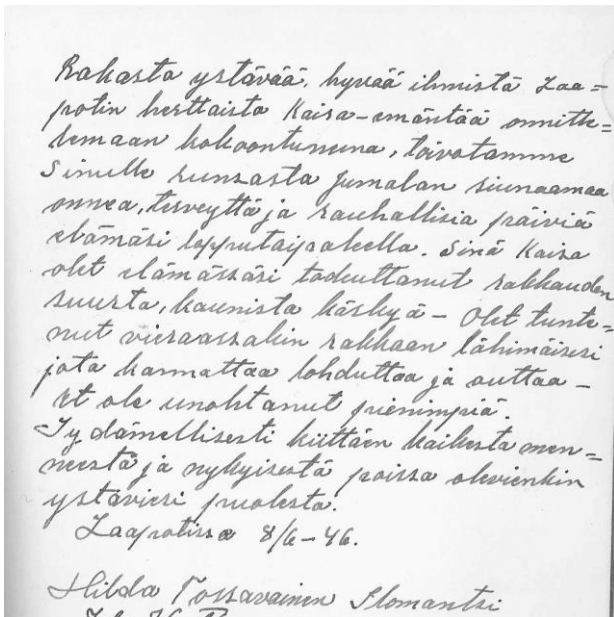 Rakasta ystävää, hyvää ilmistä Laa=
potin herttaista Kaisa-emäntää onnitte=
lemaan kokoontuneina, toivotamme
Sinulle runsasta Jumalan siunaamaa
onnea, terveyttä ja rauhallisia päiviä
elämäsi lopputaipaleella. Sinä Kaisa
olet elämässäsi toteuttanut rakkauden
suurta, kaunista käskyä - Olet tunte=
nut vieraassakin rakkaan lähimäisesi
jota kannattaa lohduttaa ja auttaa -
et ole unohtanut pienimpiä.
Sydämellisesti kiittäen kaikesta men=
neestä ja nykyisestä poissa olevienkin
ystäviesi puolesta.
Laapotissa 8/6-46.
Hilda Tossavainen Ilomantsi